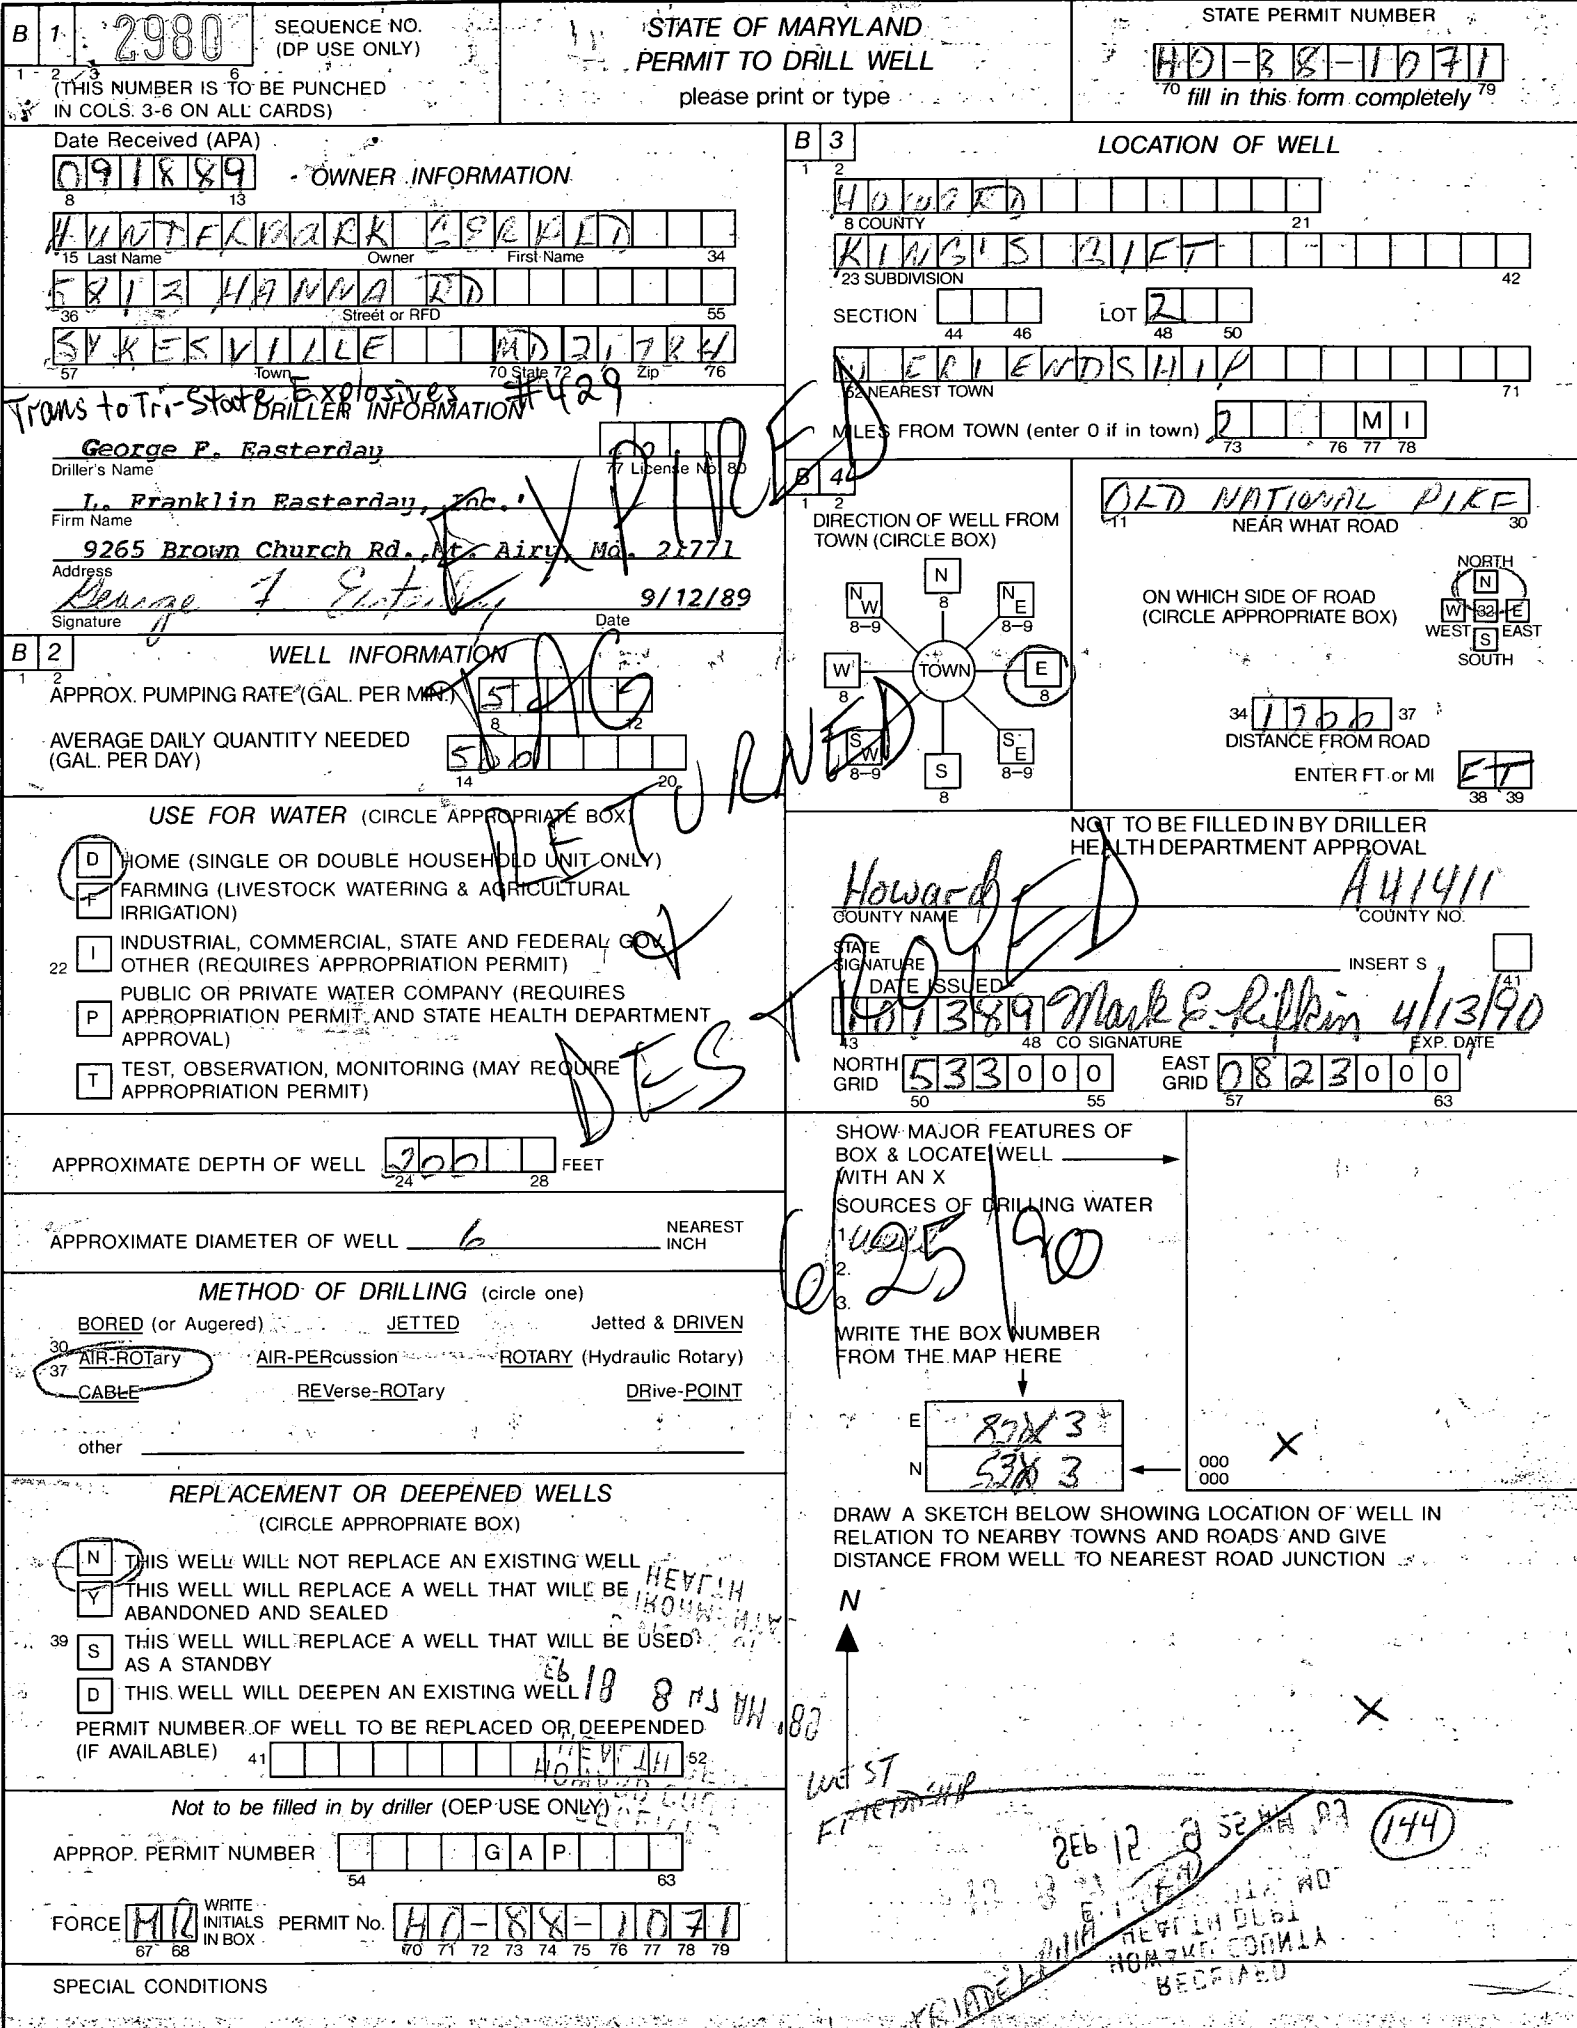 B 1 2980 SEQUENCE NO. (DP USE ONLY)
1 2 3 6
(THIS NUMBER IS TO BE PUNCHED
IN COLS. 3-6 ON ALL CARDS)
STATE OF MARYLAND
PERMIT TO DRILL WELL
please print or type
STATE PERMIT NUMBER
HO-88-1071
70 fill in this form completely 79
Date Received (APA)
091889
8 13
OWNER INFORMATION
HUNTERMARK GERALD
15 Last Name Owner First Name 34
5812 HANNA RD
36 Street or RFD 55
SYKESVILLE MD 21784
57 Town 70 State 72 Zip 76
Trans to Tri-State Explosives #429
DRILLER INFORMATION
George F. Easterday
Driller's Name 77 License No. 80
L. Franklin Easterday, Inc.
Firm Name
9265 Brown Church Rd. Mt. Airy, Md. 21771
Address
George F Easterday 9/12/89
Signature Date
EXPIRED
TAG
RETURNED
&
DESTROYED
6/25/90
B 2 WELL INFORMATION
1 2
APPROX. PUMPING RATE (GAL. PER MIN.) 5
8 12
AVERAGE DAILY QUANTITY NEEDED
(GAL. PER DAY) 500
14 20
USE FOR WATER (CIRCLE APPROPRIATE BOX)
D HOME (SINGLE OR DOUBLE HOUSEHOLD UNIT ONLY)
F FARMING (LIVESTOCK WATERING & AGRICULTURAL
IRRIGATION)
22 I INDUSTRIAL, COMMERCIAL, STATE AND FEDERAL GOV.
OTHER (REQUIRES APPROPRIATION PERMIT)
P PUBLIC OR PRIVATE WATER COMPANY (REQUIRES
APPROPRIATION PERMIT AND STATE HEALTH DEPARTMENT
APPROVAL)
T TEST, OBSERVATION, MONITORING (MAY REQUIRE
APPROPRIATION PERMIT)
APPROXIMATE DEPTH OF WELL 200 FEET
24 28
APPROXIMATE DIAMETER OF WELL 6 NEAREST
INCH
METHOD OF DRILLING (circle one)
BORED (or Augered) JETTED Jetted & DRIVEN
30
37 AIR-ROTary AIR-PERcussion ROTARY (Hydraulic Rotary)
CABLE REVerse-ROTary DRive-POINT
other
REPLACEMENT OR DEEPENED WELLS
(CIRCLE APPROPRIATE BOX)
N THIS WELL WILL NOT REPLACE AN EXISTING WELL
Y THIS WELL WILL REPLACE A WELL THAT WILL BE
ABANDONED AND SEALED
39 S THIS WELL WILL REPLACE A WELL THAT WILL BE USED
AS A STANDBY
D THIS WELL WILL DEEPEN AN EXISTING WELL
PERMIT NUMBER OF WELL TO BE REPLACED OR DEEPENDED
(IF AVAILABLE) 41 52
Not to be filled in by driller (OEP USE ONLY)
APPROP. PERMIT NUMBER G A P
54 63
FORCE MR WRITE INITIALS IN BOX PERMIT No. HO-88-1071
67 68 70 71 72 73 74 75 76 77 78 79
SPECIAL CONDITIONS
B 3 LOCATION OF WELL
1 2
HOWARD
8 COUNTY 21
KING'S GIFT
23 SUBDIVISION 42
SECTION LOT 2
44 46 48 50
W FRIENDSHIP
52 NEAREST TOWN 71
MILES FROM TOWN (enter 0 if in town) 2 M I
73 76 77 78
B 4
1 2
DIRECTION OF WELL FROM
TOWN (CIRCLE BOX)
N
8
NW NE
8-9 8-9
W TOWN E
8 8
SW SE
8-9 8-9
S
8
OLD NATIONAL PIKE
11 NEAR WHAT ROAD 30
ON WHICH SIDE OF ROAD
(CIRCLE APPROPRIATE BOX)
NORTH
N
W 32 E
WEST S EAST
SOUTH
34 1700 37
DISTANCE FROM ROAD
ENTER FT or MI FT
38 39
NOT TO BE FILLED IN BY DRILLER
HEALTH DEPARTMENT APPROVAL
Howard A41411
COUNTY NAME COUNTY NO.
STATE
SIGNATURE INSERT S
41
DATE ISSUED
101389 Mark E. Rifkin 4/13/90
43 48 CO SIGNATURE EXP. DATE
NORTH
GRID 533000
50 55
EAST
GRID 0823000
57 63
SHOW MAJOR FEATURES OF
BOX & LOCATE WELL
WITH AN X
SOURCES OF DRILLING WATER
1.
2.
3.
WRITE THE BOX NUMBER
FROM THE MAP HERE
E 3
N 3
X
000
000
DRAW A SKETCH BELOW SHOWING LOCATION OF WELL IN
RELATION TO NEARBY TOWNS AND ROADS AND GIVE
DISTANCE FROM WELL TO NEAREST ROAD JUNCTION
N
X
WEST
FRIENDSHIP
144
TRIADELPHIA
HEALTH DEPT
HOWARD COUNTY
RECEIVED